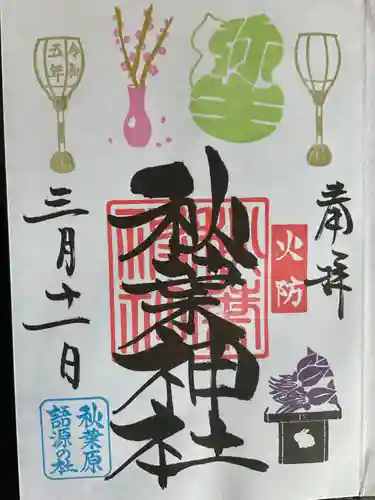 奉拝
火防
弥生
秋葉神社
令和
五年
三月十一日
秋葉原
語源の社